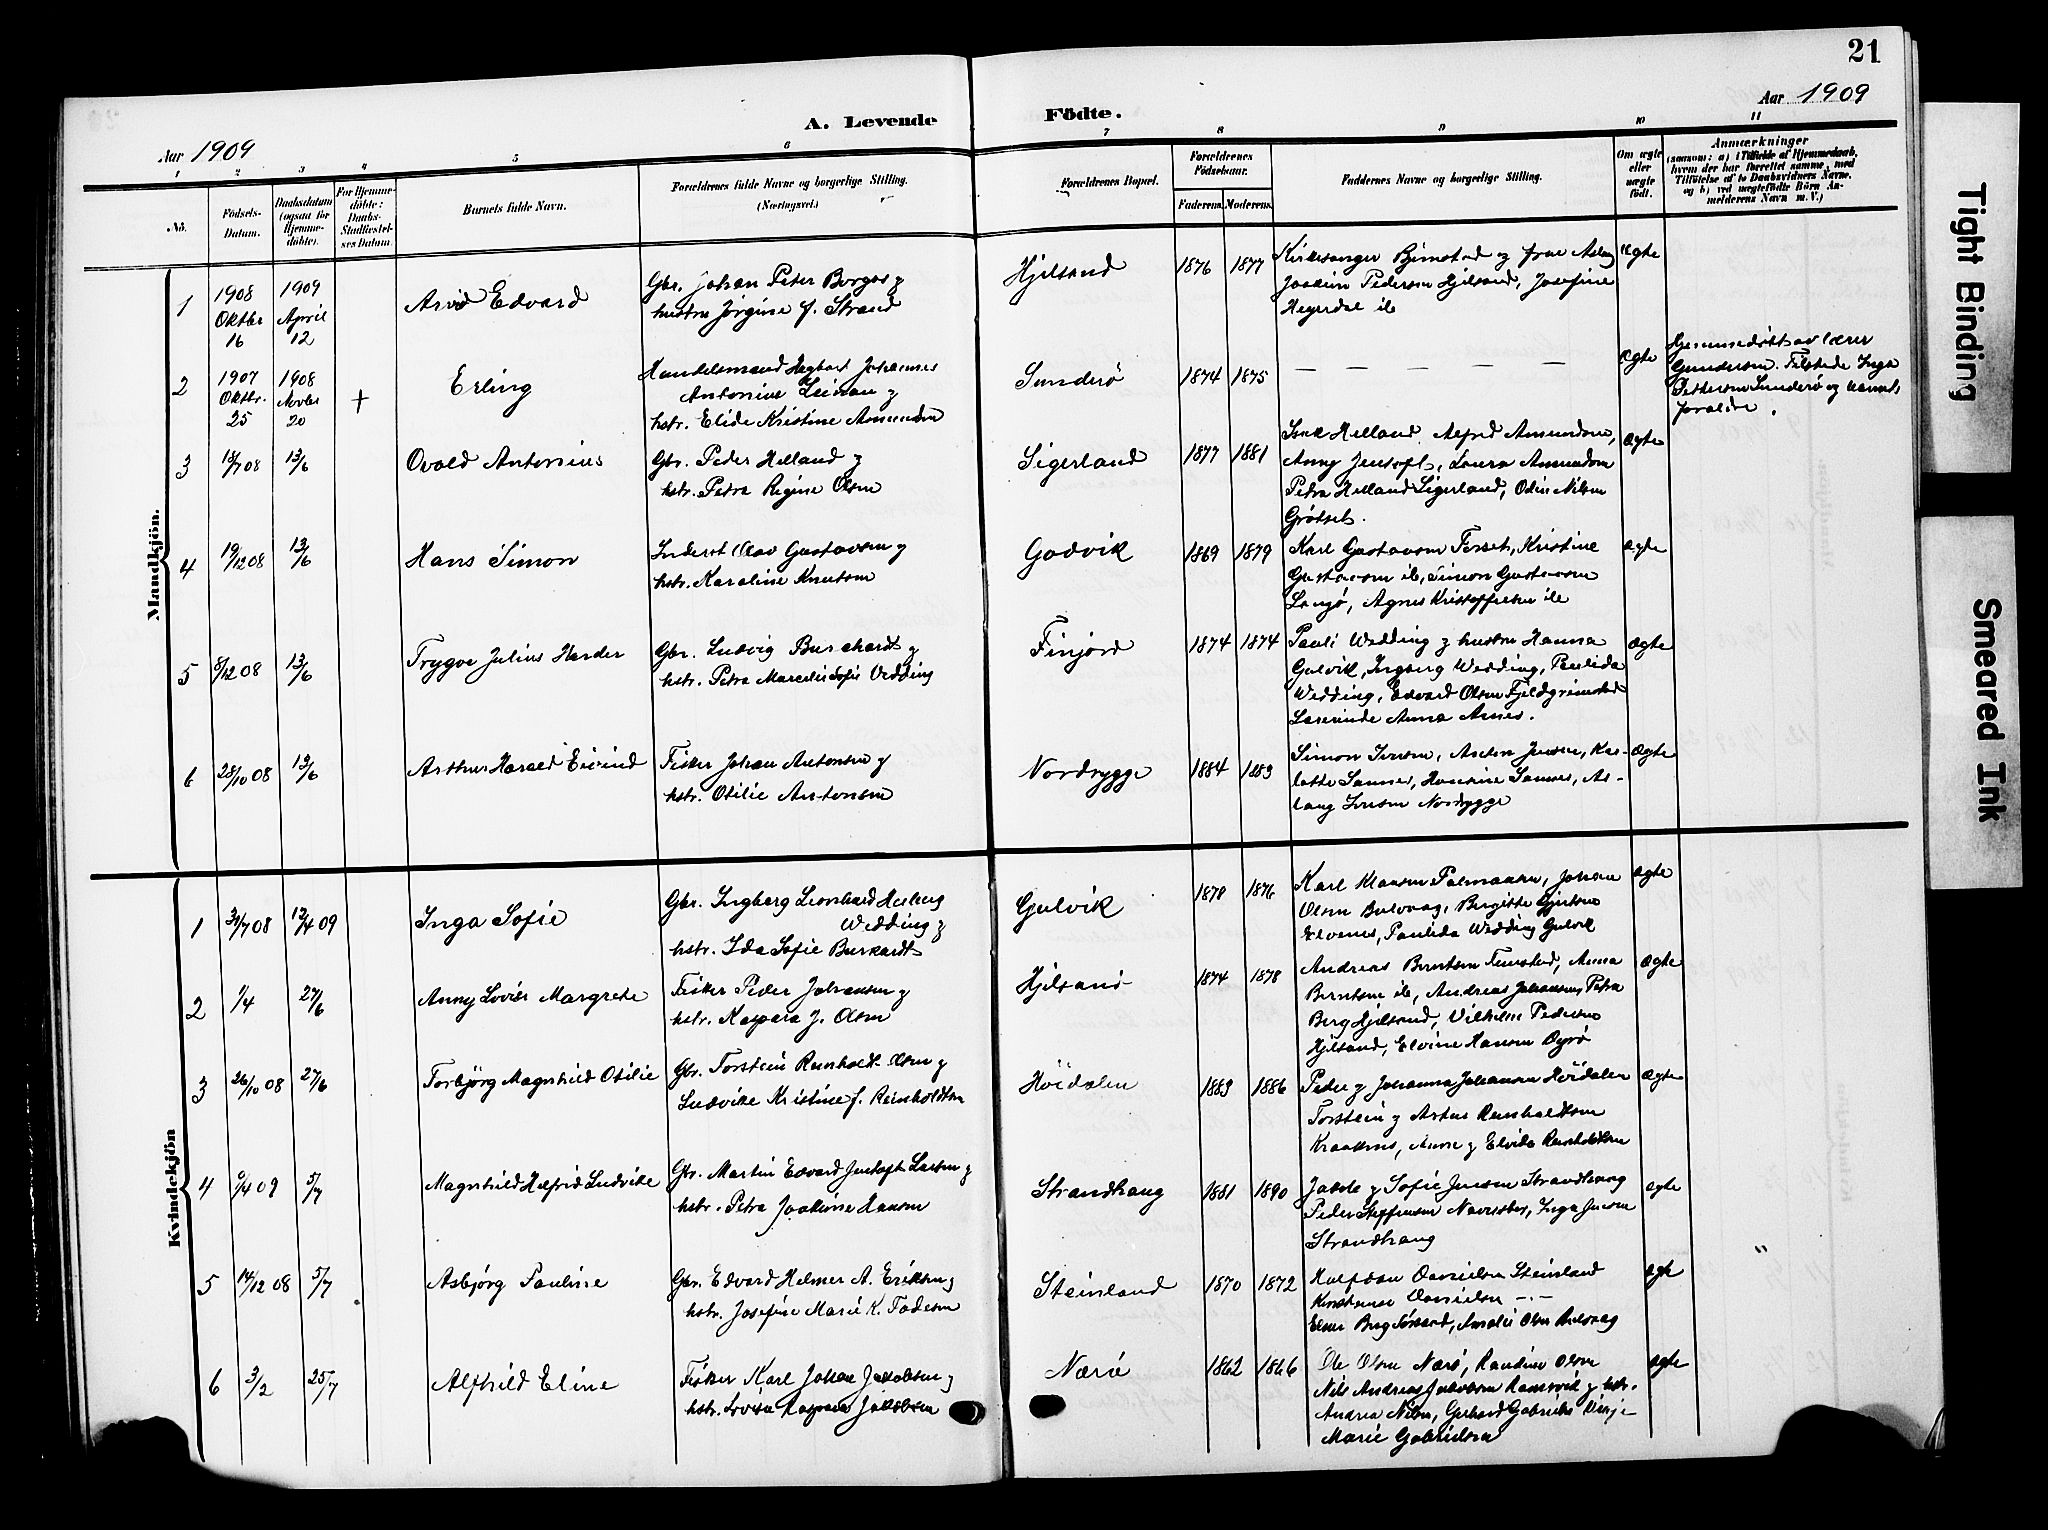 21
Aar 1909
A. Levende Födte.
Aar 1909
1 2 3 4 5 6 7 8 9 10 11
No.
Födsels-
Datum.
Daabsdatum
(ogsaa for
Hjemme-
döbte).
For Hjemme-
döbte:
Daabs-
Stadfæstel-
ses Datum.
Barnets fulde Navn.
Forældrenes fulde Navne og borgerlige Stilling.
(Næringsvei.)
Forældrenes Bopæl.
Forældrenes
Födselsaar.
Faderens. Moderens.
Faddernes Navne og borgerlige Stilling.
Om ægte
eller
uægte
födt.
Anmærkninger
(saasom: a) i Tilfælde af Hjemmedaab,
hvem der har forrettet samme, med
Tilföielse af to Daabsvidners Navne,
og b) ved uægtefödte Börn An-
melderens Navn m. V.)
Mandkjön.
1
1908
Oktbr
16
1909
April
12
Arvid Edvard
Gbr. Johan Peter Borgos og
hustru Jörgine f. Strand
Hjelsand
1876 1877
Kirkesanger Bjrnstad og frue
Joakim Pedersen Hjelsand, Josefine
Heyerdal ib
ægte
2
1907
Oktbr.
25
1908
Novbr
20
+
Erling
Handelsmand Hagbart Johannes
Antonius Leinan og
hstr. Elide Kristine Amundsen
Sunderö
1874 1875
— — — — —
ægte
Hjemmedöbt av lærer
Gundersen. Tilstede Inga
Pettersen Sunderö og barnets
forældre.
3
18/7 08
13/6
Osvald Antonius
Gbr. Peder Helland og
hstr. Petra Regine Olsen
Sigerland
1877 1881
Helland, Alfred Amundsen,
Anny Jentoft, Laura Amundsen
Petra Helland Sigerland, Odin Nilsen
Grötset.
ægte
4
19/12 08
13/6
Hans Simon
Inderst Olav Gustavsen og
hstr. Karoline Knutsen
Godvik
1869 1879
Karl Gustavsen Forset, Kristine
Gustavsen ib, Simon Gustavsen
Langö, Agnes Kristoffersen ib
ægte
5
8/12 08
13/6
Trygve Julius Harder
Gbr. Ludvig Burchardt og
hstr. Petra Marcelie Sofie Vedding
Finjord
1874 1874
Pauli Wedding og hustru Hanna
Gulvik, Ingberg Wedding, Paulida
Wedding, Edvard Olsen Fjeldgrimstad
Lærerinde Anna Arnes.
ægte
6
28/10 08
13/6
Arthur Harald Eivind
Fisker Johan Antonsen og
hstr. Otilie Antonsen
Nordrygge
1884 1883
Simon Ivrsen, Anton Jensen, Kar-
lotte Sannes, Hansine Sannes, As-
laug Ivrsen Nordrygge
ægte
Kvindekjön
1
31/7 08
12/4 09
Inga Sofie
Gbr. Ingberg Leonhard Hejberg
Wedding og
hstr. Ida Sofie Burkardt
Gulvik
1878 1876
Karl Klausen Palmansen, Johan
Olsen Bulvaag, Birgitte Gjertsen
Elvenes, Paulida Wedding Gulvik
ægte
2
1/4
27/6
Anny Lovise Margrete
Fisker Peder Johansen og
hstr. Kaspara J. Olsen
Hjelsand
1874 1878
Andreas Berntsen Finnstad, Anna
Berntsen ib, Andreas Johansen, Petra
Berg Hjelsand, Vilhelm Pedersen
Hjelsand, Elvine Hansen Oyrö
ægte
3
26/10 08
27/6
Torbjörg Magnhild Otilie
Gbr. Torstein Reinholdt Olsen og
Ludvike Kristine f. Reinholdtsen
Höidalen
1883 1886
Peder og Johanna Johansen Höidalen
Torstein og Artur Reinholdtsen
Kraaknes, Anne og Elvida Reinholdtsen
ægte
4
9/4 09
5/7
Magnhild Helfrid Ludvike
Gbr. Martin Edvard Jentoft Larsen og
hstr. Petra Joakime Hansen
Strandhaug
1881 1890
Jakob og Sofie Jensen Strandhaug
Peder Steffensen Naversber, Inga Jensen
Strandhaug
ægte
"
5
14/12 08
5/7
Asbjörg Pauline
Gbr. Edvard Helmer A. Eriksen og
hstr. Josefine Marie K. Tobiesen
Steinland
1870 1872
Halfdan Danielsen Steinland
Konstanse Danielsen -"-
Elmer Berg Försand, Amalie Olsen Aalsvaag
ægte
6
3/2
25/7
Alfhild Eline
Fisker Karl Johan Jakobsen og
hstr. Lovise Kaspara Jakobsen
Nærö
1862 1866
Ole Olsen Nærö, Randine Olsen
Nils Andreas Jakobsen Ramsvik og hstr.
Andrea Nilsen, Gerhard Gabriels
Marie Gabrielsen
ægte
Tight Binding
Smeared Ink